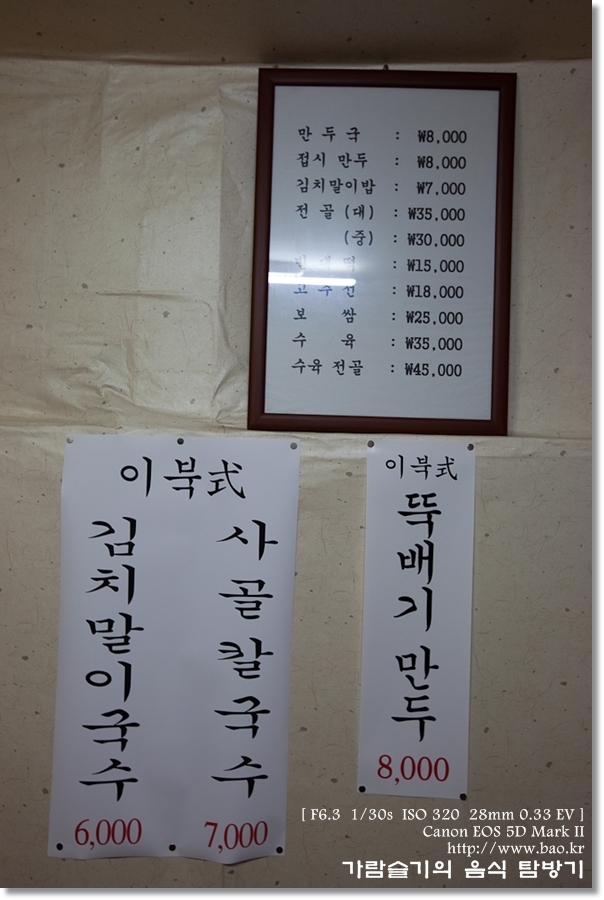 만두국 : ₩8,000
접시 만두 : ₩8,000
김치말이밥 : ₩7,000
전 골 (대) : ₩35,000
(중) : ₩30,000
: ₩15,000
: ₩18,000
보 쌈 : ₩25,000
수 육 : ₩35,000
수육 전골 : ₩45,000
이북式
김치말이국수
6,000
사골칼국수
7,000
이북式
뚝배기 만두
8,000
[ F6.3 1/30s ISO 320 28mm 0.33 EV ]
Canon EOS 5D Mark II
http://www.bao.kr
가람슬기의 음식 탐방기